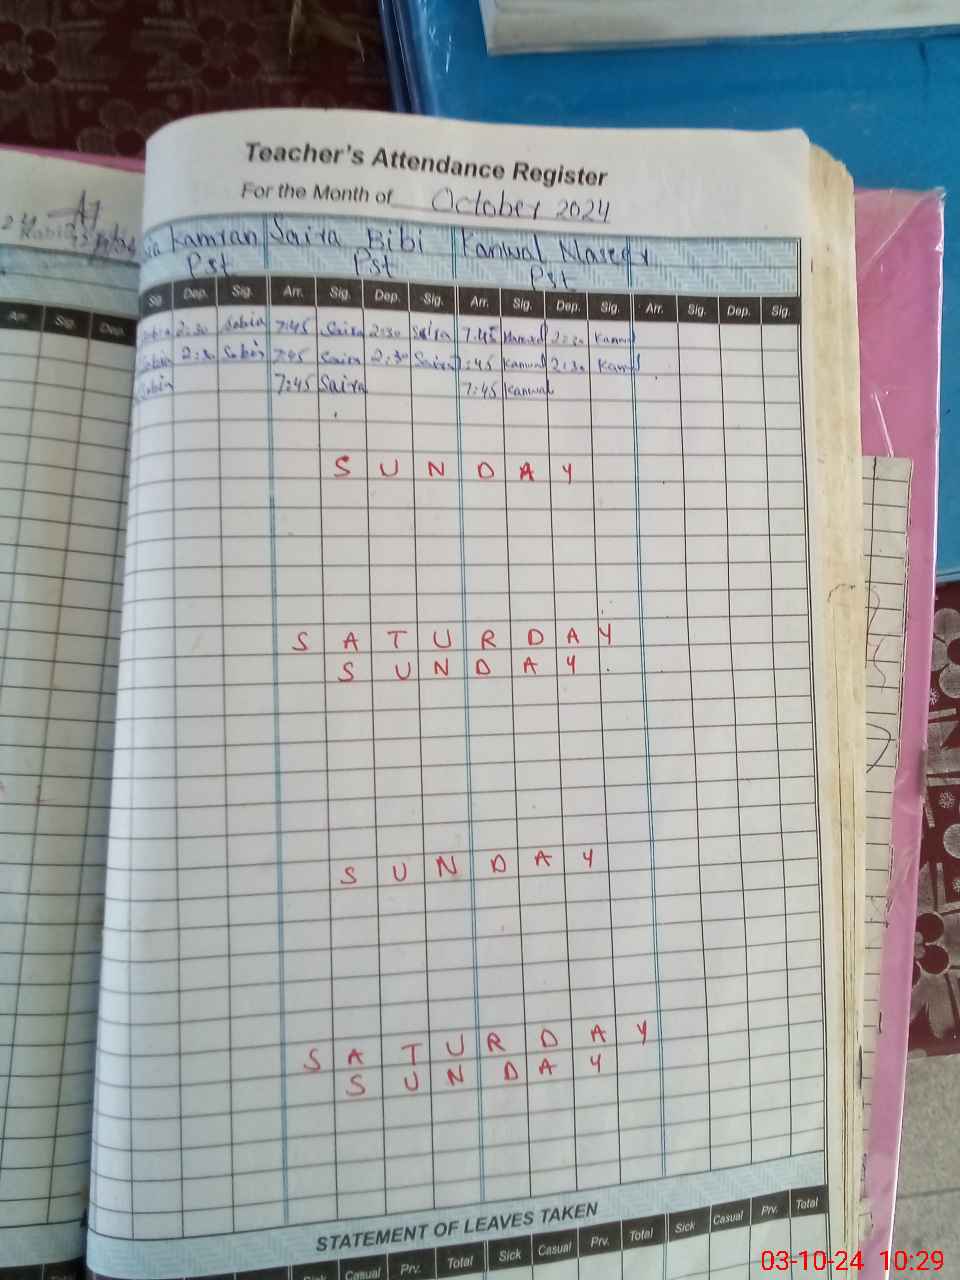 Teacher's Attendance Register
For the Month of October 2024
Kamran Saira Bibi Kanwal
Pst Pst Pst
Arr. Sig. Dep.
Sig. Dep. Sig. Arr. Sig. Dep. Sig. Arr. Sig. Dep. Sig. Arr. Sig. Dep. Sig.
2:30 Sabia 7:45 Saira 2:30 Saira 7:45 Kanwal 2:30 Kanwal
2:30 Sabia 7:45 Saira 2:30 Saira 7:45 Kanwal 2:30 Kanwal
7:45 Saira 7:45 Kanwal
SUNDAY
SATURDAY
SUNDAY
SUNDAY
SATURDAY
SUNDAY
STATEMENT OF LEAVES TAKEN
Sick Casual Prv. Total Sick Casual Prv. Total Sick Casual Prv. Total
03-10-24 10:29